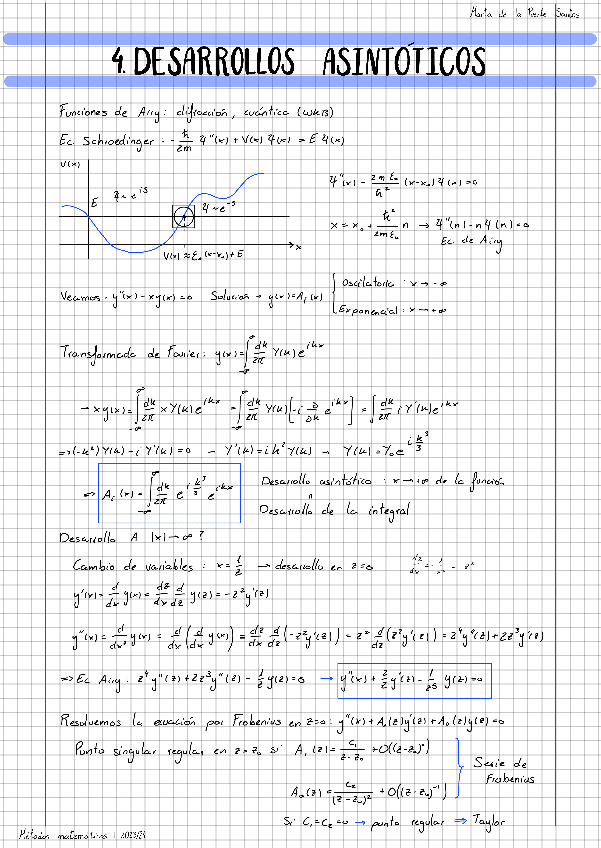 Marta de la Puente Santos
4. DESARROLLOS ASINTÓTICOS
Funciones de Airy: difracción, cuántica (WKB)
Ec. Schroedinger: -ħ/2m Ψ''(x) + V(x) Ψ(x) = E Ψ(x)
V(x)
E
Ψ ~ e^{iS}
Ψ ~ e^{-S}
x
V(x) ≈ E_0(x-x_0) + E
Ψ''(x) - 2mE_0/ħ² (x-x_0) Ψ(x) = 0
x = x_0 + ħ²/2mE_0 n → Ψ''(n) - nΨ(n) = 0
Ec. de Airy
Veamos - y''(x) - xy(x) = 0 Solución → y(x) = A_i(x)
Oscilatoria: x → -∞
Exponencial: x → +∞
Transformada de Fourier: y(x) = ∫_{-∞}^{∞} dk/2π Y(k) e^{ikx}
→ xy(x) = ∫_{-∞}^{∞} dk/2π x Y(k) e^{ikx} = ∫_{-∞}^{∞} dk/2π Y(k) [-i ∂/∂k e^{ikx}] = ∫ dk/2π i Y'(k) e^{ikx}
=> (-k²) Y(k) - i Y'(k) = 0 → Y'(k) = i k² Y(k) → Y(k) = Y_0 e^{i k³/3}
=> A_i(x) = ∫_{-∞}^{∞} dk/2π e^{i k³/3} e^{ikx}
Desarrollo asintótico: x → +∞ de la función
Desarrollo de la integral
Desarrollo A |x| → ∞ ?
Cambio de variables: x = 1/z → desarrollo en z = 0
dz/dx = -1/x² = -z²
y'(x) = d/dx y(x) = dz/dx d/dz y(z) = -z² y'(z)
y''(x) = d/dx² y(x) = d/dx (d/dx y(x)) = dz/dx d/dz (-z² y'(z)) = z² d/dz (z² y'(z)) = z⁴ y''(z) + 2z³ y'(z)
=> Ec Airy: z⁴ y''(z) + 2z³ y''(z) - 1/z y(z) = 0 → y''(x) + 2/z y'(z) - 1/z⁵ y(z) = 0
Resolvemos la ecuación por Frobenius en z = 0: y''(x) + A_1(z) y'(z) + A_0(z) y(z) = 0
Punto singular regular en z = z_0 si: A_1(z) = c_1/z-z_0 + O((z-z_0)^0)
A_0(z) = c_2/(z-z_0)² + O((z-z_0)^{-1})
Serie de
Frobenius
Si C_1 = C_2 = 0 → punto regular ⇒ Taylor
Métodos matemáticos I 2023/24